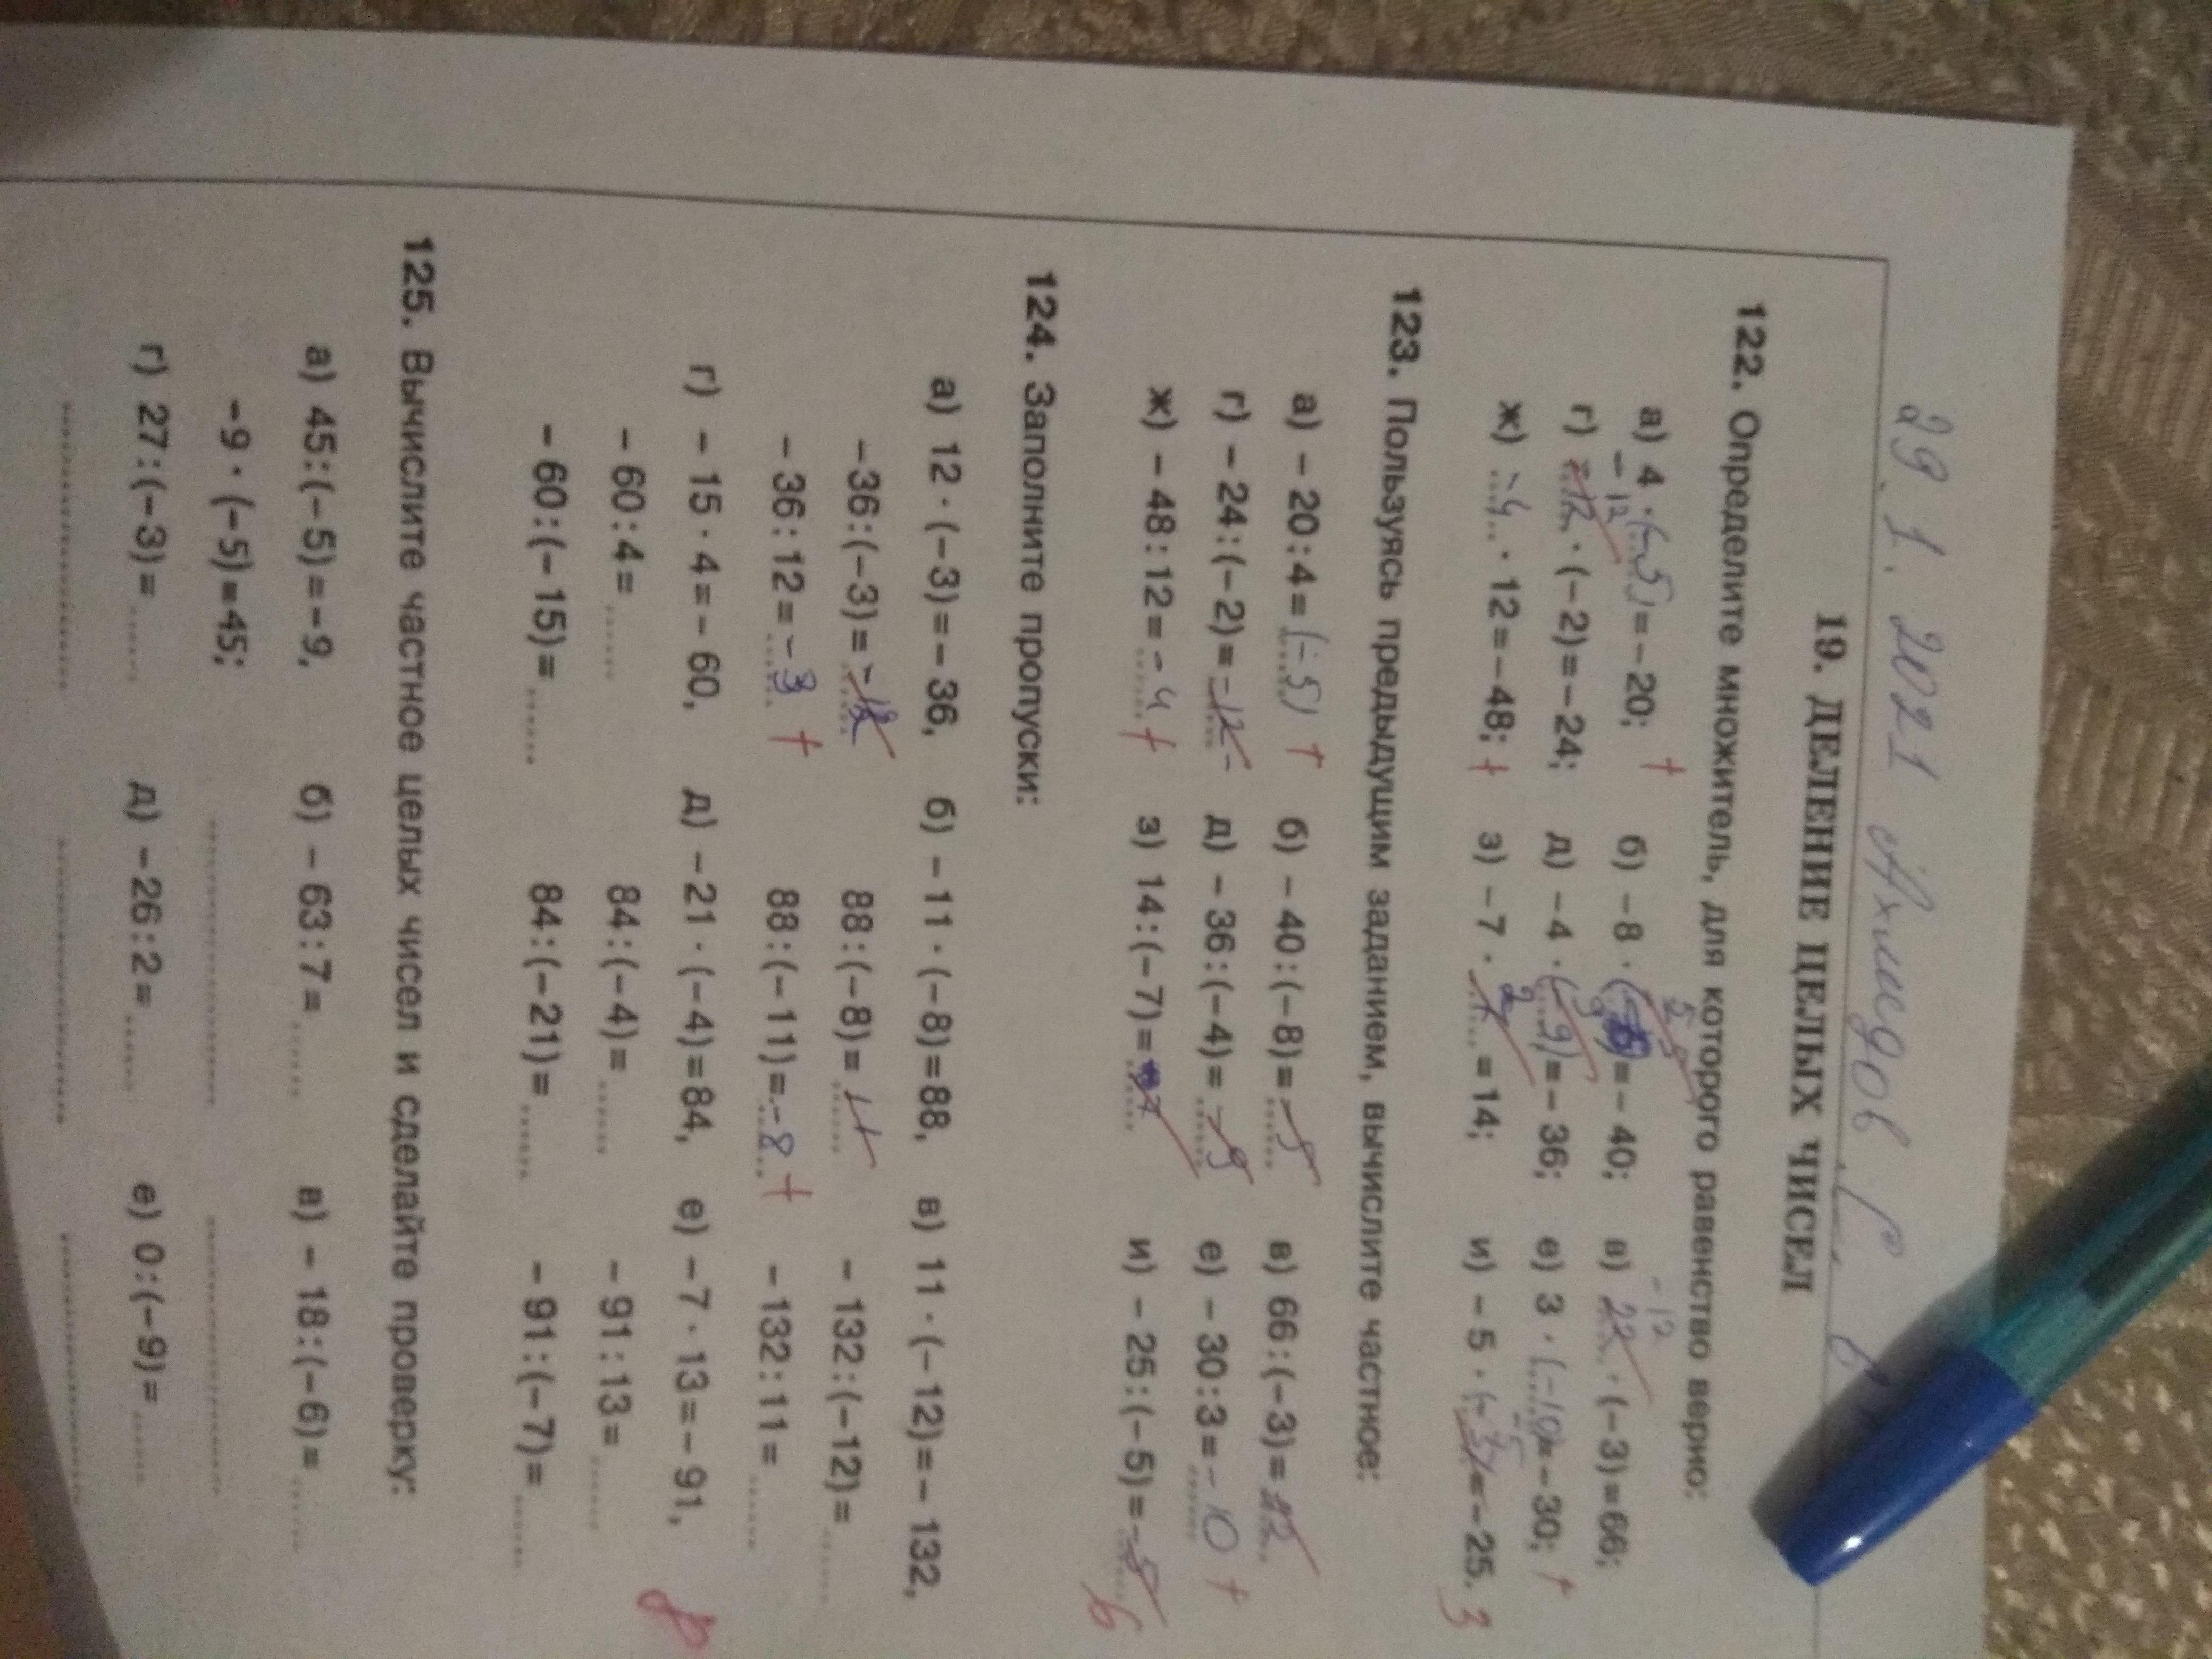 29.1.2021 Ахмидов
19. ДЕЛЕНИЕ ЦЕЛЫХ ЧИСЕЛ
122. Определите множитель, для которого равенство верно:
а) 4 · (-5) = -20; + б) -8 · = -40; в) 22 · (-3) = 66;
-12
г) · (-2) = -24; д) -4 · (-9) = -36; е) 3 · (-10) = -30; +
ж) -4 · 12 = -48; + з) -7 · = 14; и) -5 · = -25. 3
123. Пользуясь предыдущим заданием, вычислите частное:
а) -20 : 4 = (-5) + б) -40 : (-8) = -5 в) 66 : (-3) = 22
г) -24 : (-2) = -12 д) -36 : (-4) = -9 е) -30 : 3 = -10 +
ж) -48 : 12 = -4 + з) 14 : (-7) = и) -25 : (-5) = -5 6
124. Заполните пропуски:
а) 12 · (-3) = -36, б) -11 · (-8) = 88, в) 11 · (-12) = -132,
-36 : (-3) = -12 88 : (-8) = 11 -132 : (-12) = ......
-36 : 12 = -3 + 88 : (-11) = -8 + -132 : 11 = ......
г) -15 · 4 = -60, д) -21 · (-4) = 84, е) -7 · 13 = -91,
-60 : 4 = ...... 84 : (-4) = ...... -91 : 13 = ......
-60 : (-15) = ...... 84 : (-21) = ...... -91 : (-7) = ......
125. Вычислите частное целых чисел и сделайте проверку:
а) 45 : (-5) = -9, б) -63 : 7 = ...... в) -18 : (-6) = ......
-9 · (-5) = 45;
г) 27 : (-3) = ...... д) -26 : 2 = ...... е) 0 : (-9) = ......